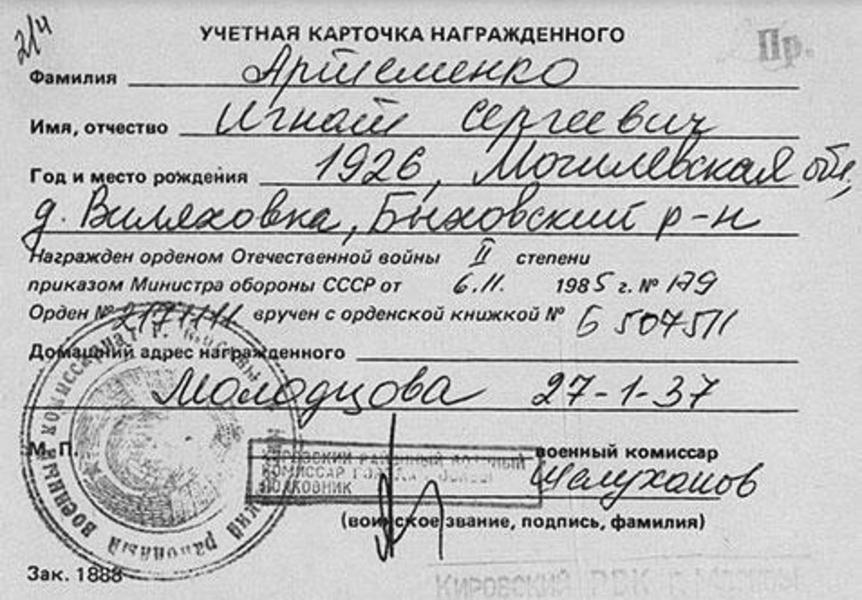 2/4
УЧЕТНАЯ КАРТОЧКА НАГРАЖДЕННОГО
Пр.
Фамилия Артеменко
Имя, отчество Игнат Сергеевич
Год и место рождения 1926, Могилевская обл,
д. Виляховка, Быховский р-н
Награжден орденом Отечественной войны II степени
приказом Министра обороны СССР от 6.11. 1985 г. № 179
Орден № вручен с орденской книжкой № Б 507511
Домашний адрес награжденного
Молодцова 27-1-37
М. П. военный комиссар
КИРОВСКИЙ РАЙОННЫЙ ВОЕННЫЙ
КОМИССАР ГОРОДА МОСКВЫ
ПОЛКОВНИК
Шелуханов
(воинское звание, подпись, фамилия)
районный военный
Зак. 1888
КИРОВСКИЙ РВК Г. МОСКВЫ